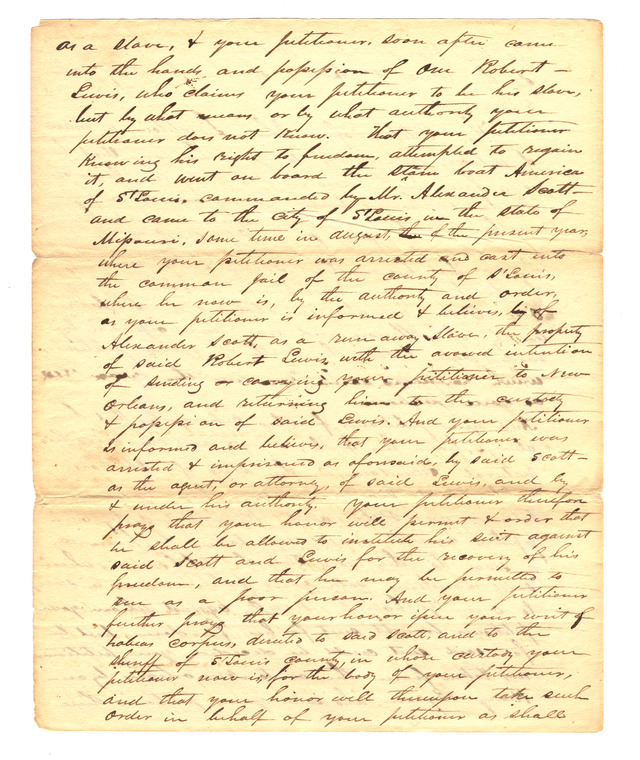 as a slave, & your petitioner, soon after came
into the hands and possession of one Robert
Lewis, who claims your petitioner to be his slave,
but by what means or by what authority your
petitioner does not know. That your petitioner
knowing his right to freedom, attempted to regain
it, and went on board the steam boat America
of St Louis, commanded by Mr. Alexander Scott
and came to the city of St Louis, in the state of
Missouri, some time in august, of the present year,
where your petitioner was arrested and cast into
the common jail of the county of St Louis,
where he now is, by the authority and order,
as your petitioner is informed & believes, of
Alexander Scott, as a run away slave, the property
of said Robert Lewis, with the avowed intention
of sending or carrying your petitioner to New
Orleans, and returning him to the custody
& possession of said Lewis. And your petitioner
is informed and believes, that your petitioner was
arrested & imprisoned as aforesaid, by said Scott
as the agent, or attorney, of said Lewis, and by
& under his authority. Your petitioner therefore
prays that your honor will permit & order that
he shall be allowed to institute his suit against
said Scott and Lewis for the recovery of his
freedom, and that he may be permitted to
sue as a poor person. And your petitioner
further prays that your honor issue your writ of
habeas corpus, directed to said Scott, and to the
sheriff of St Louis county, in whose custody your
petitioner now is, for the body of your petitioner,
and that your honor will thereupon take such
order in behalf of your petitioner as shall